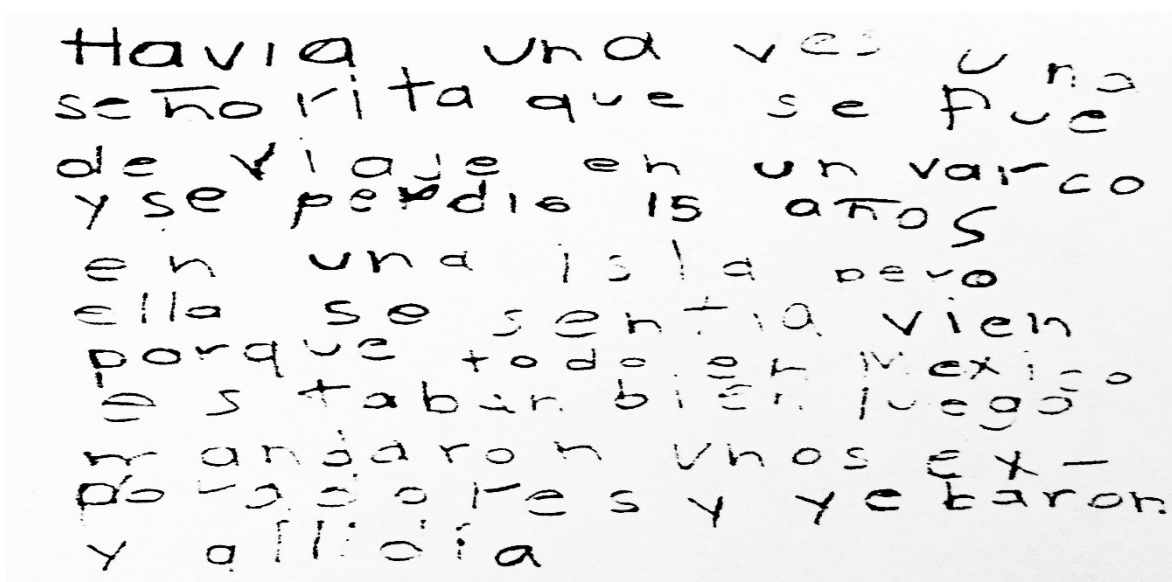 Havia una ves una
señorita que se fue
de viaje en un varco
y se perdio 15 años
en una isla pero
ella se sentia vien
porque todo en Mexico
estaban bien luego
mandaron unos ex-
ploradores y yebaron
y allidia